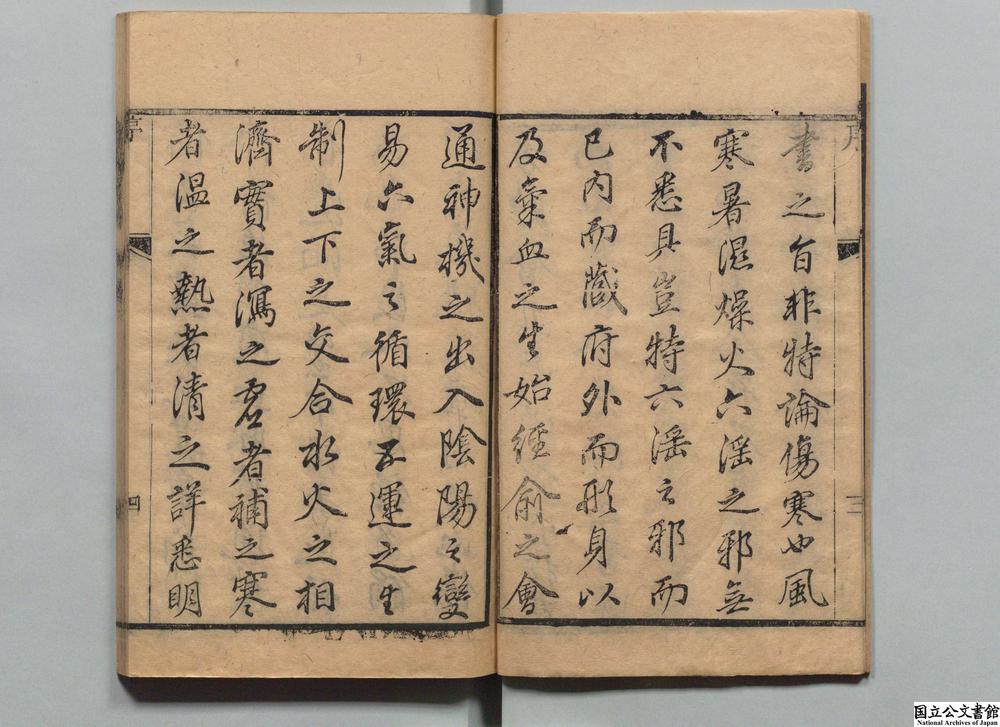 序
三
書之旨非特論傷寒也風
寒暑濕燥火六淫之邪無
不悉具豈特六淫之邪而
已內而臟府外而形身以
及氣血之生始經俞之會
通神機之出入陰陽之變
易六氣之循環五運之生
制上下之交合水火之相
濟實者瀉之虛者補之寒
者温之熱者清之詳悉明
序
四
国立公文書館
National Archives of Japan